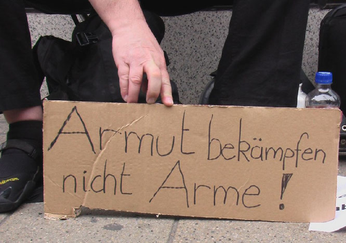 Armut bekämpfen
nicht Arme!